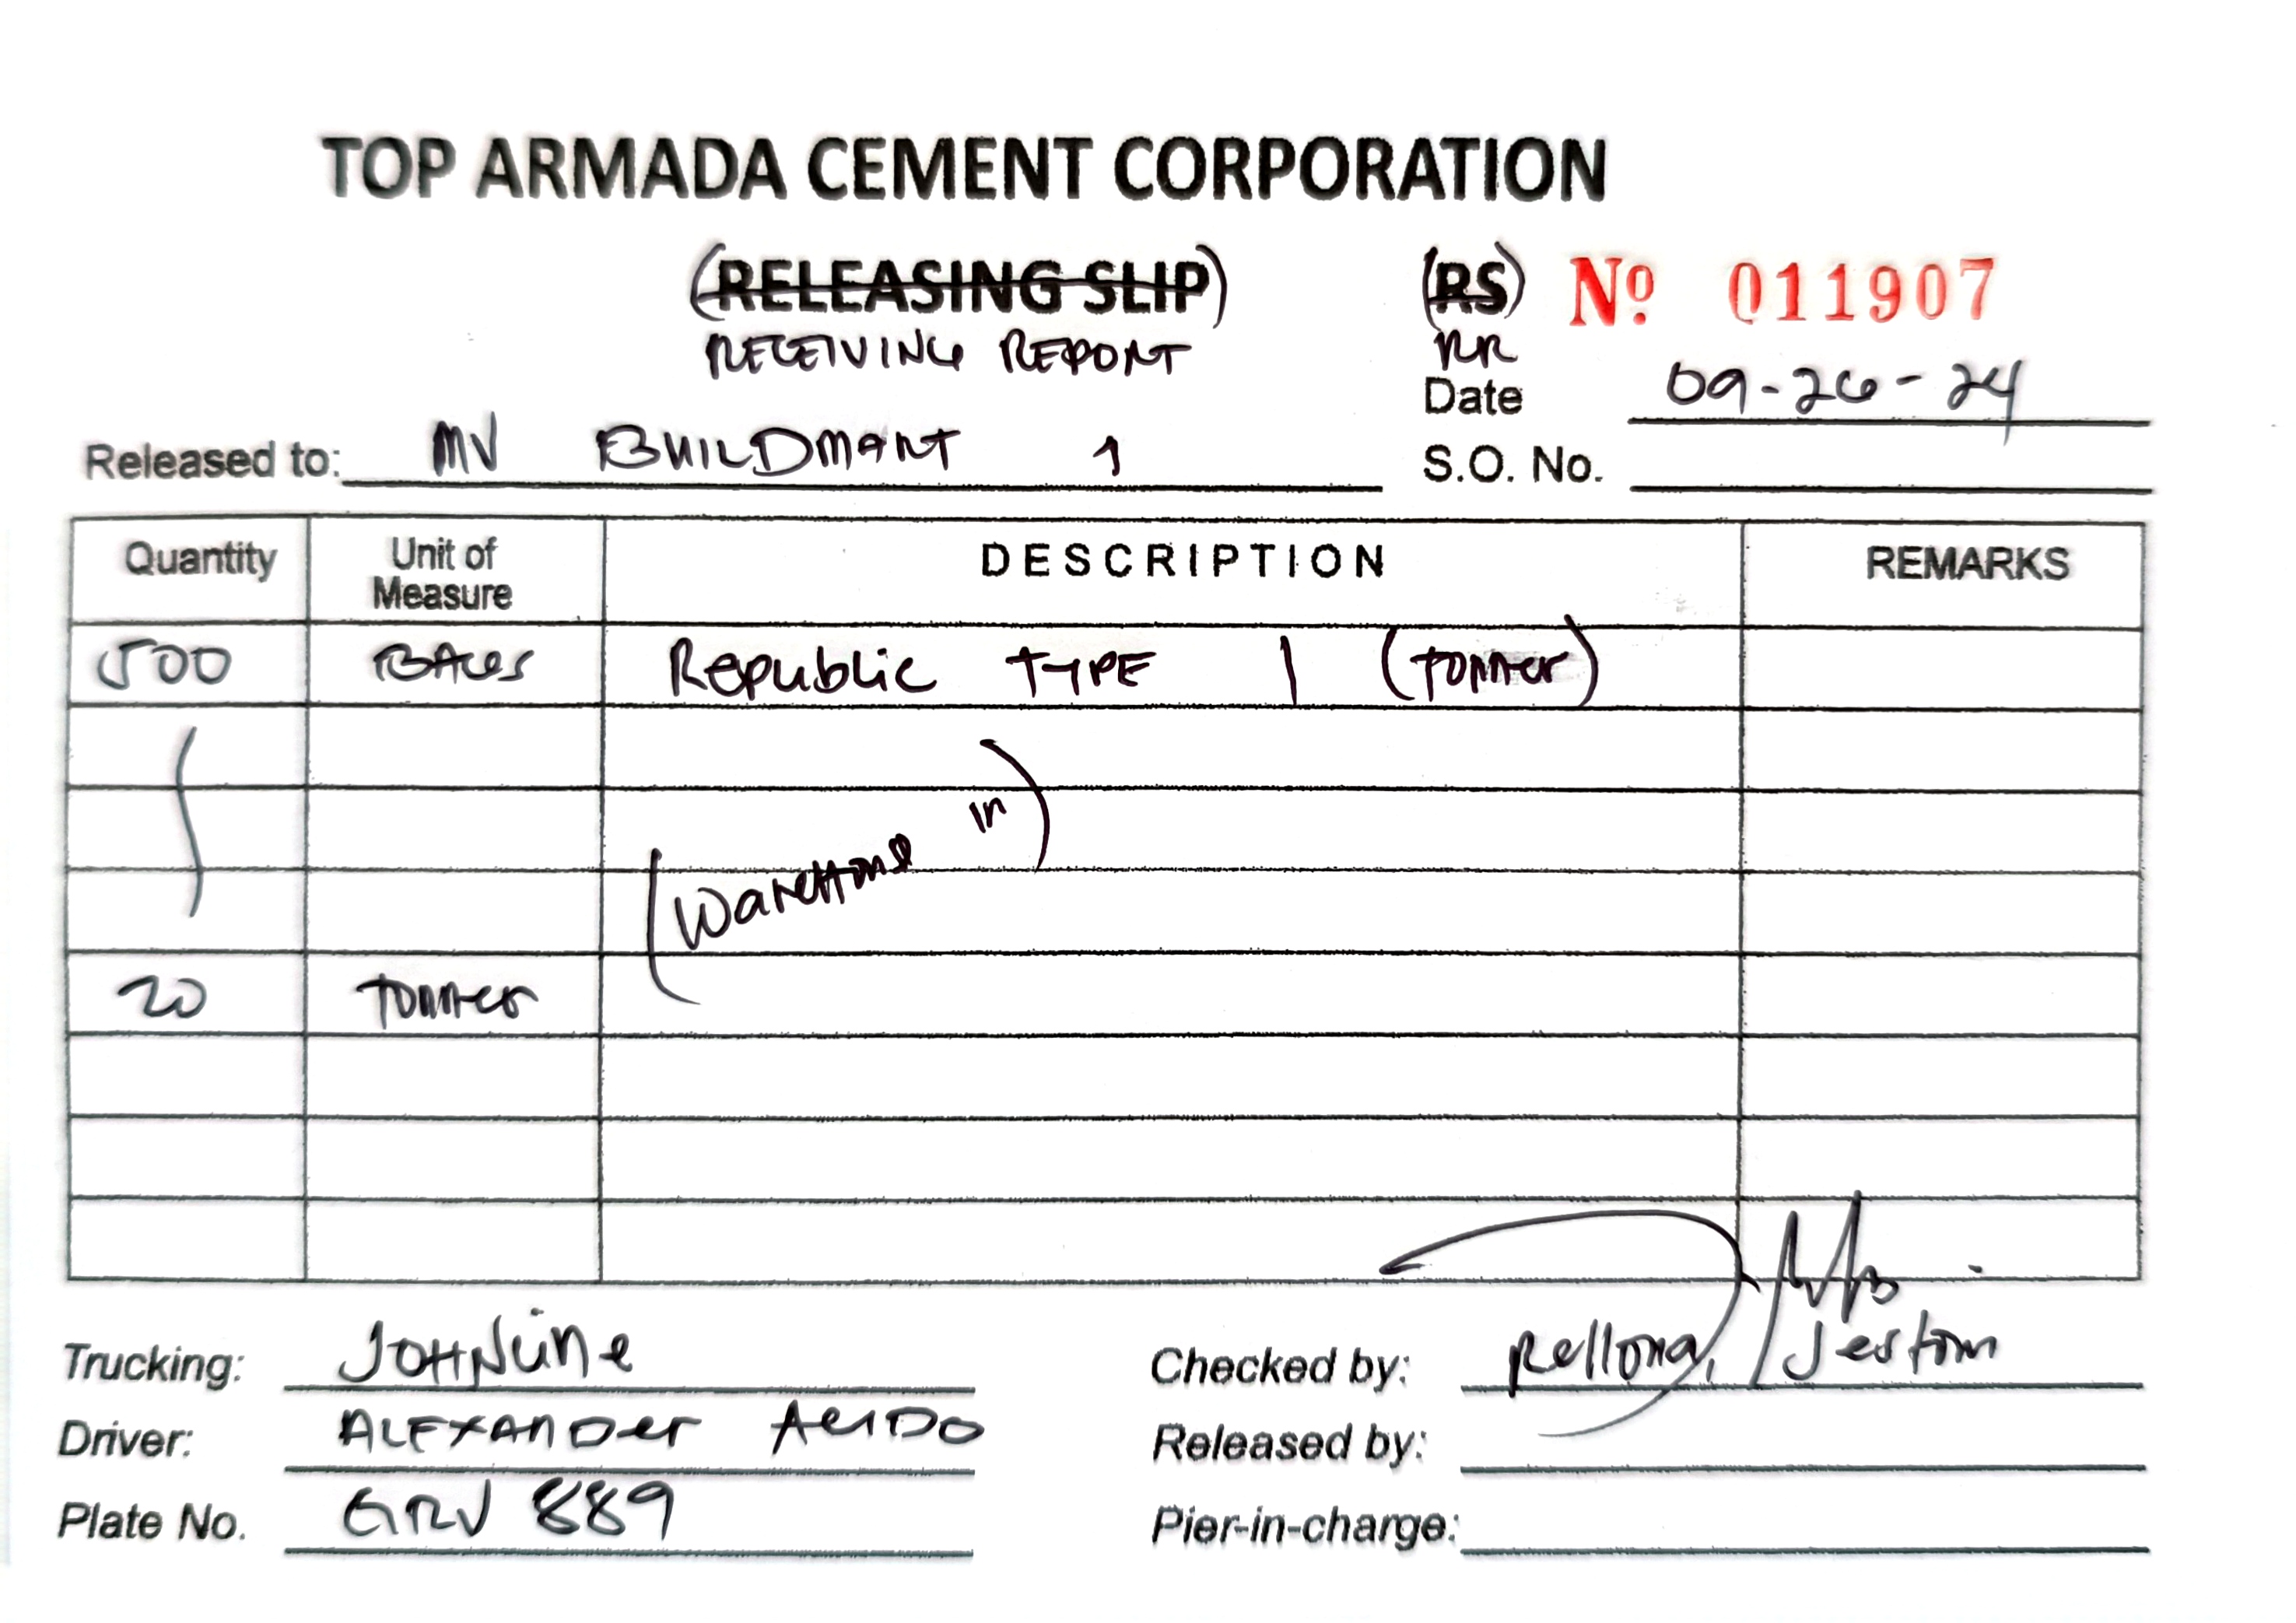 TOP ARMADA CEMENT CORPORATION
(RELEASING SLIP) (RS) Nº 011907
RECEIVING REPORT RR
Date 09-26-24
Released to: MV BUILDMART 1 S.O. No.
Quantity Unit of Measure DESCRIPTION REMARKS
500 BAGS Republic TYPE 1 (TONNER)
(WAREHOUSE in)
20 TONNER
Trucking: JOHNLINE Checked by: Rellona, Jestoni
Driver: ALEXANDER ACIDO Released by:
Plate No. GRV 889 Pier-in-charge: